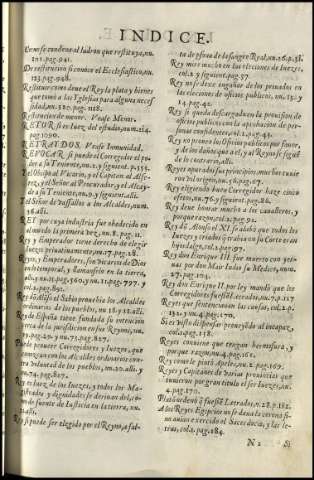 INDICE.
Como se condene al ladron que restituye, nu.
121. pag. 941.
De restitucion si conoce el Ecclesiastico, nu.
123. pag. 948.
Restituir como deue el Rey la plata y bienes
que tomò a las Yglesias para alguna neces
sidad, nu. 320. pag. 118.
Restitucion de menor. Vease Menor.
RETOR si es Iuez del estudio, num. 214.
pag. 1090.
RETRAIDOS. Vease Inmunidad.
REVOCAR si puede el Corregidor el po
der a su Teniente, nu. 2. y siguient. p. 155.
Y el Obispo al Vicario, y el Capitan al Alfe-
rez, y el Señor al Procurador, y el Alcay-
de a su Teniente, nu. 9. y siguient. alli.
Y el Señor de Vassallos a los Alcaldes, num.
16. alli.
REY por cuya industria fue obedecido en
el mundo la primera vez, nu. 8. pag. 11.
Rey y Emperador tiene derecho de elegir
Iuezes priuatiuamente, num. 17. pag. 28.
Reyes, y Emperadores, son Vicarios de Dios
en lo temporal, y llamaronse en la tierra,
col. 2. nu. 21. pag. 560. y nu. 11. pag. 797. y
col. 2. pag. 891.
Rey don Alfonso el Sabio proueìa los Alcaldes
ordinarios de los pueblos, nu. 18. y 22. alli.
Rey de España tiene fundada su intencion
cerca de la jurisdicion en sus Reynos, nu.
17. pag. 29. y nu. 73. pag. 827.
Puede proueer Corregidores y Iuezes, que
conozcan con los Alcaldes ordinarios con-
tra voluntad de los pueblos, nu. 20. alli. y
nu. 74. pag. 827.
Rey es Iuez de los Iuezes, y todos los Ma-
gistrados y dignidades se deriuan del, co-
mo de fuente de Iusticia en la tierra, nu.
alli.
Rey si puede ser elegido por el Reyno, a fal-
ta de pssor de la sangre Real, nu. 26. p. 31.
Rey mire mucho en las eleciones de Iuezes,
col. 2. y siguient. pag. 37.
Rey no se dexe engañar de los priuados en
las eleciones de oficios publicos, nu. 13. y
14. pag. 42.
Rey si queda descargado en la prouision de
oficios publicos con la aprobacion de per-
sonas confidentes, col. 2. pag. 43.
Rey no prouea los Oficios publicos por fauor,
y de los daños que a el, y al Reyno se sigue
de lo contrario, alli.
Reyes aprouados sus principios, muchas cuen
tas resignaron, nu. 6. pag. 67.
Rey eligiendo buen Corregidor haze cinco
efetos, nu. 76. y siguient. pag. 86.
Rey deue honrar mucho a los caualleros, y
porque razon, col. 2. pag. 92.
Rey dõ Alonso el XI. se alabò que todos los
Iuezes y criados q̃ traìa en su Corte eran
hijosdalgo, col. 2. pag. 97.
Rey don Enrique III. fue muerto con yer-
uas por don Mair Iudio su Medico, num.
27. pag. 104.
Rey don Enrique II. por ley mandò que los
Corregidores fuessẽ Letrados, nu. 7. p. 117
Reyes que sentenciauan las causas, col. 2. p.
132. y nu. 4. pag. 170.
Si es visto dispensar proueydo al incapaz,
col. 2. pag. 138.
Reyes conuiene que tengan hermosura, y
porque razon, nu. 4. pag. 162.
Rey como le pintò Apeles, nu. 2. pag. 167.
Reyes y Capitanes de varias prouincias que
tuuieron por gran titulo el ser Iuezes, nu.
4. pag. 170.
Platò ordenò q̃ fuessẽ Letrados, n. 28. p. 182.
A los Reyes Egipcios no se daua la corona si
no auian exercido el Sacerdocio, y las le-
tras, col. 2. pag. 184.
N 2 Si